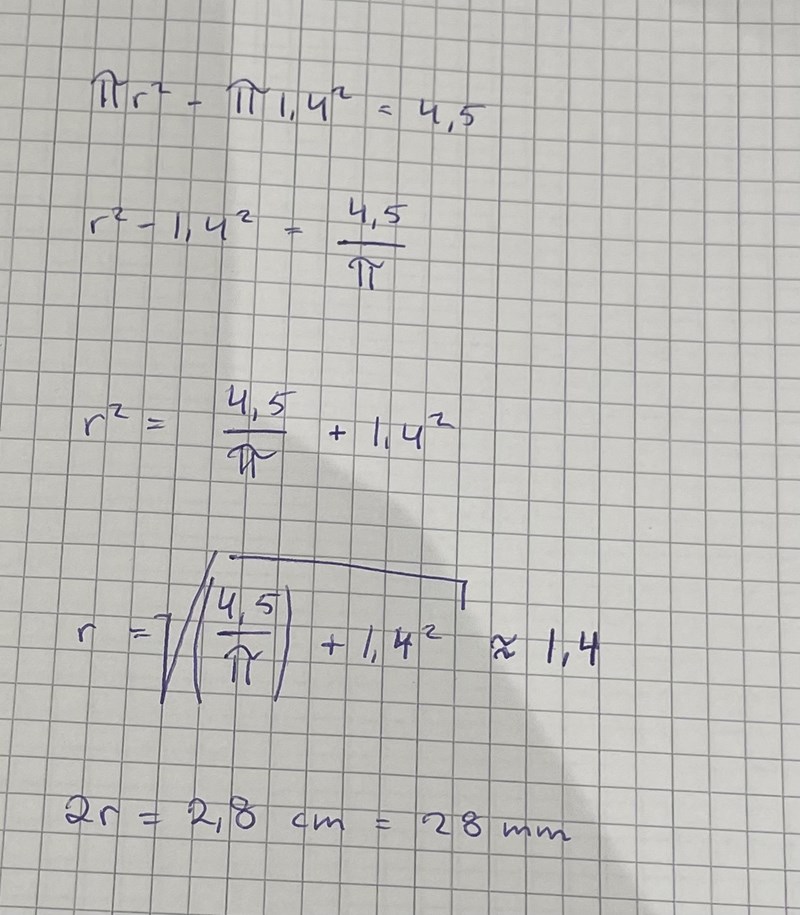 πr² - π1,4² = 4,5
r² - 1,4² = 4,5/π
r² = 4,5/π + 1,4²
r = √((4,5/π) + 1,4²) ≈ 1,4
2r = 2,8 cm = 28 mm